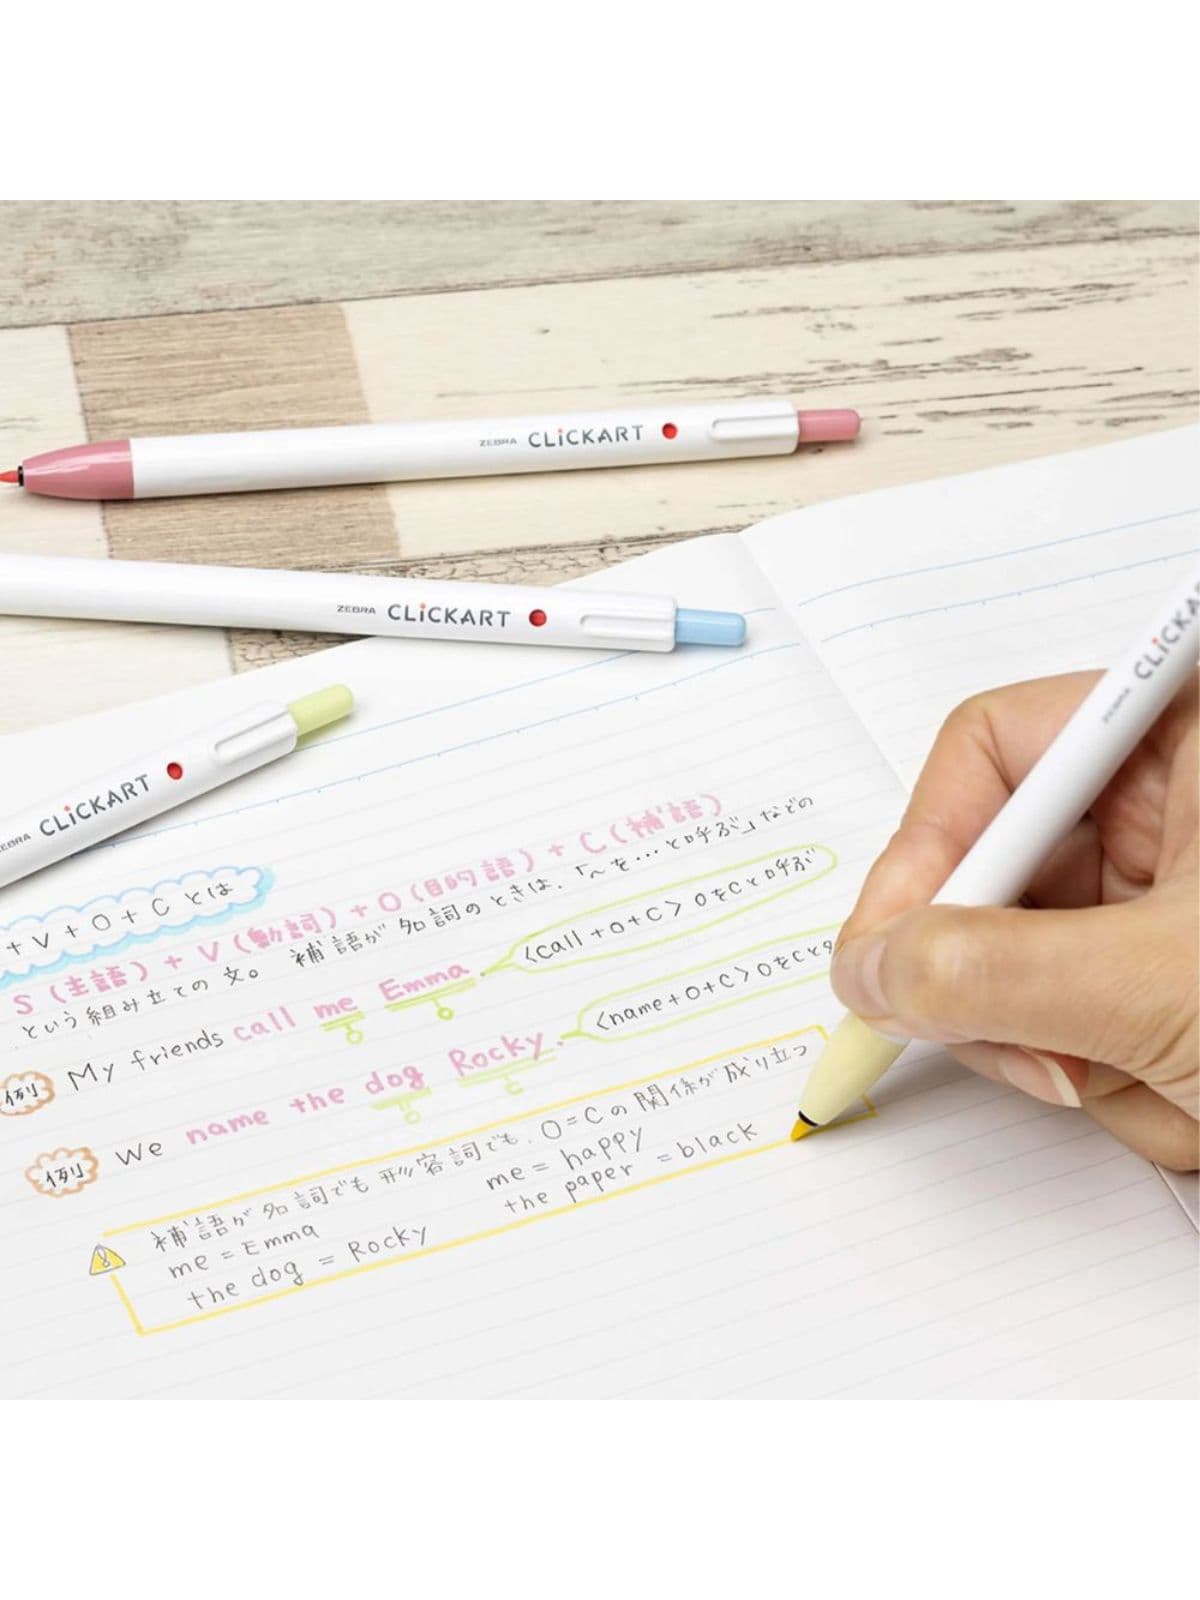 ZEBRA CLiCKART
ZEBRA CLiCKART
ZEBRA CLiCKART
ZEBRA CLiCKA
+ V + O + C とは
S (主語) + V (動詞) + O (目的語) + C (補語)
という組み立ての文。 補語が名詞のときは、「～を…と呼ぶ」などの
例 My friends call me Emma. <call + O + C> OをCと呼ぶ
例 We name the dog Rocky. <name + O + C> OをCと
補語が名詞でも形容詞でも、O = Cの関係が成り立つ
me = Emma me = happy
the dog = Rocky the paper = black